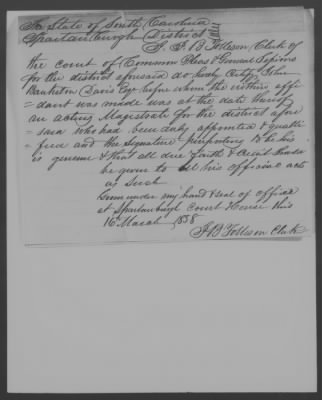 The State of South Carolina
Spartanburgh District
I J B Tolleson, Clerk of
the Court of Common Pleas & General Sessions
for the district aforesaid do hereby Certify John
Bankston Davis Esqr before whom the within affi
davit was made was at the date thereof
an acting Magistrate for the district afore
said who had been duly appointed & quali
fied and the signature purporting to be his
is genuine & that all due faith & Credit should
be given to all his official acts
as such
Given under my hand & seal of office
at Spartanburgh Court House this
16 March 1858
J B Tolleson Clerk